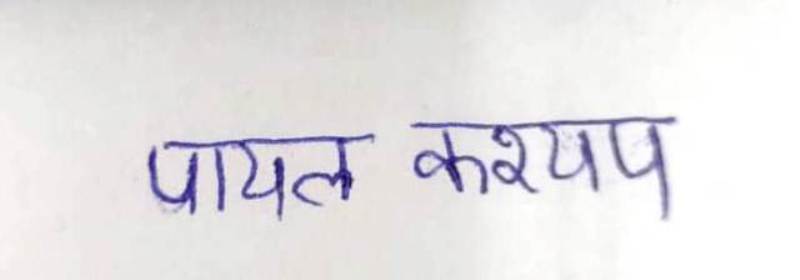 पायल कश्यप